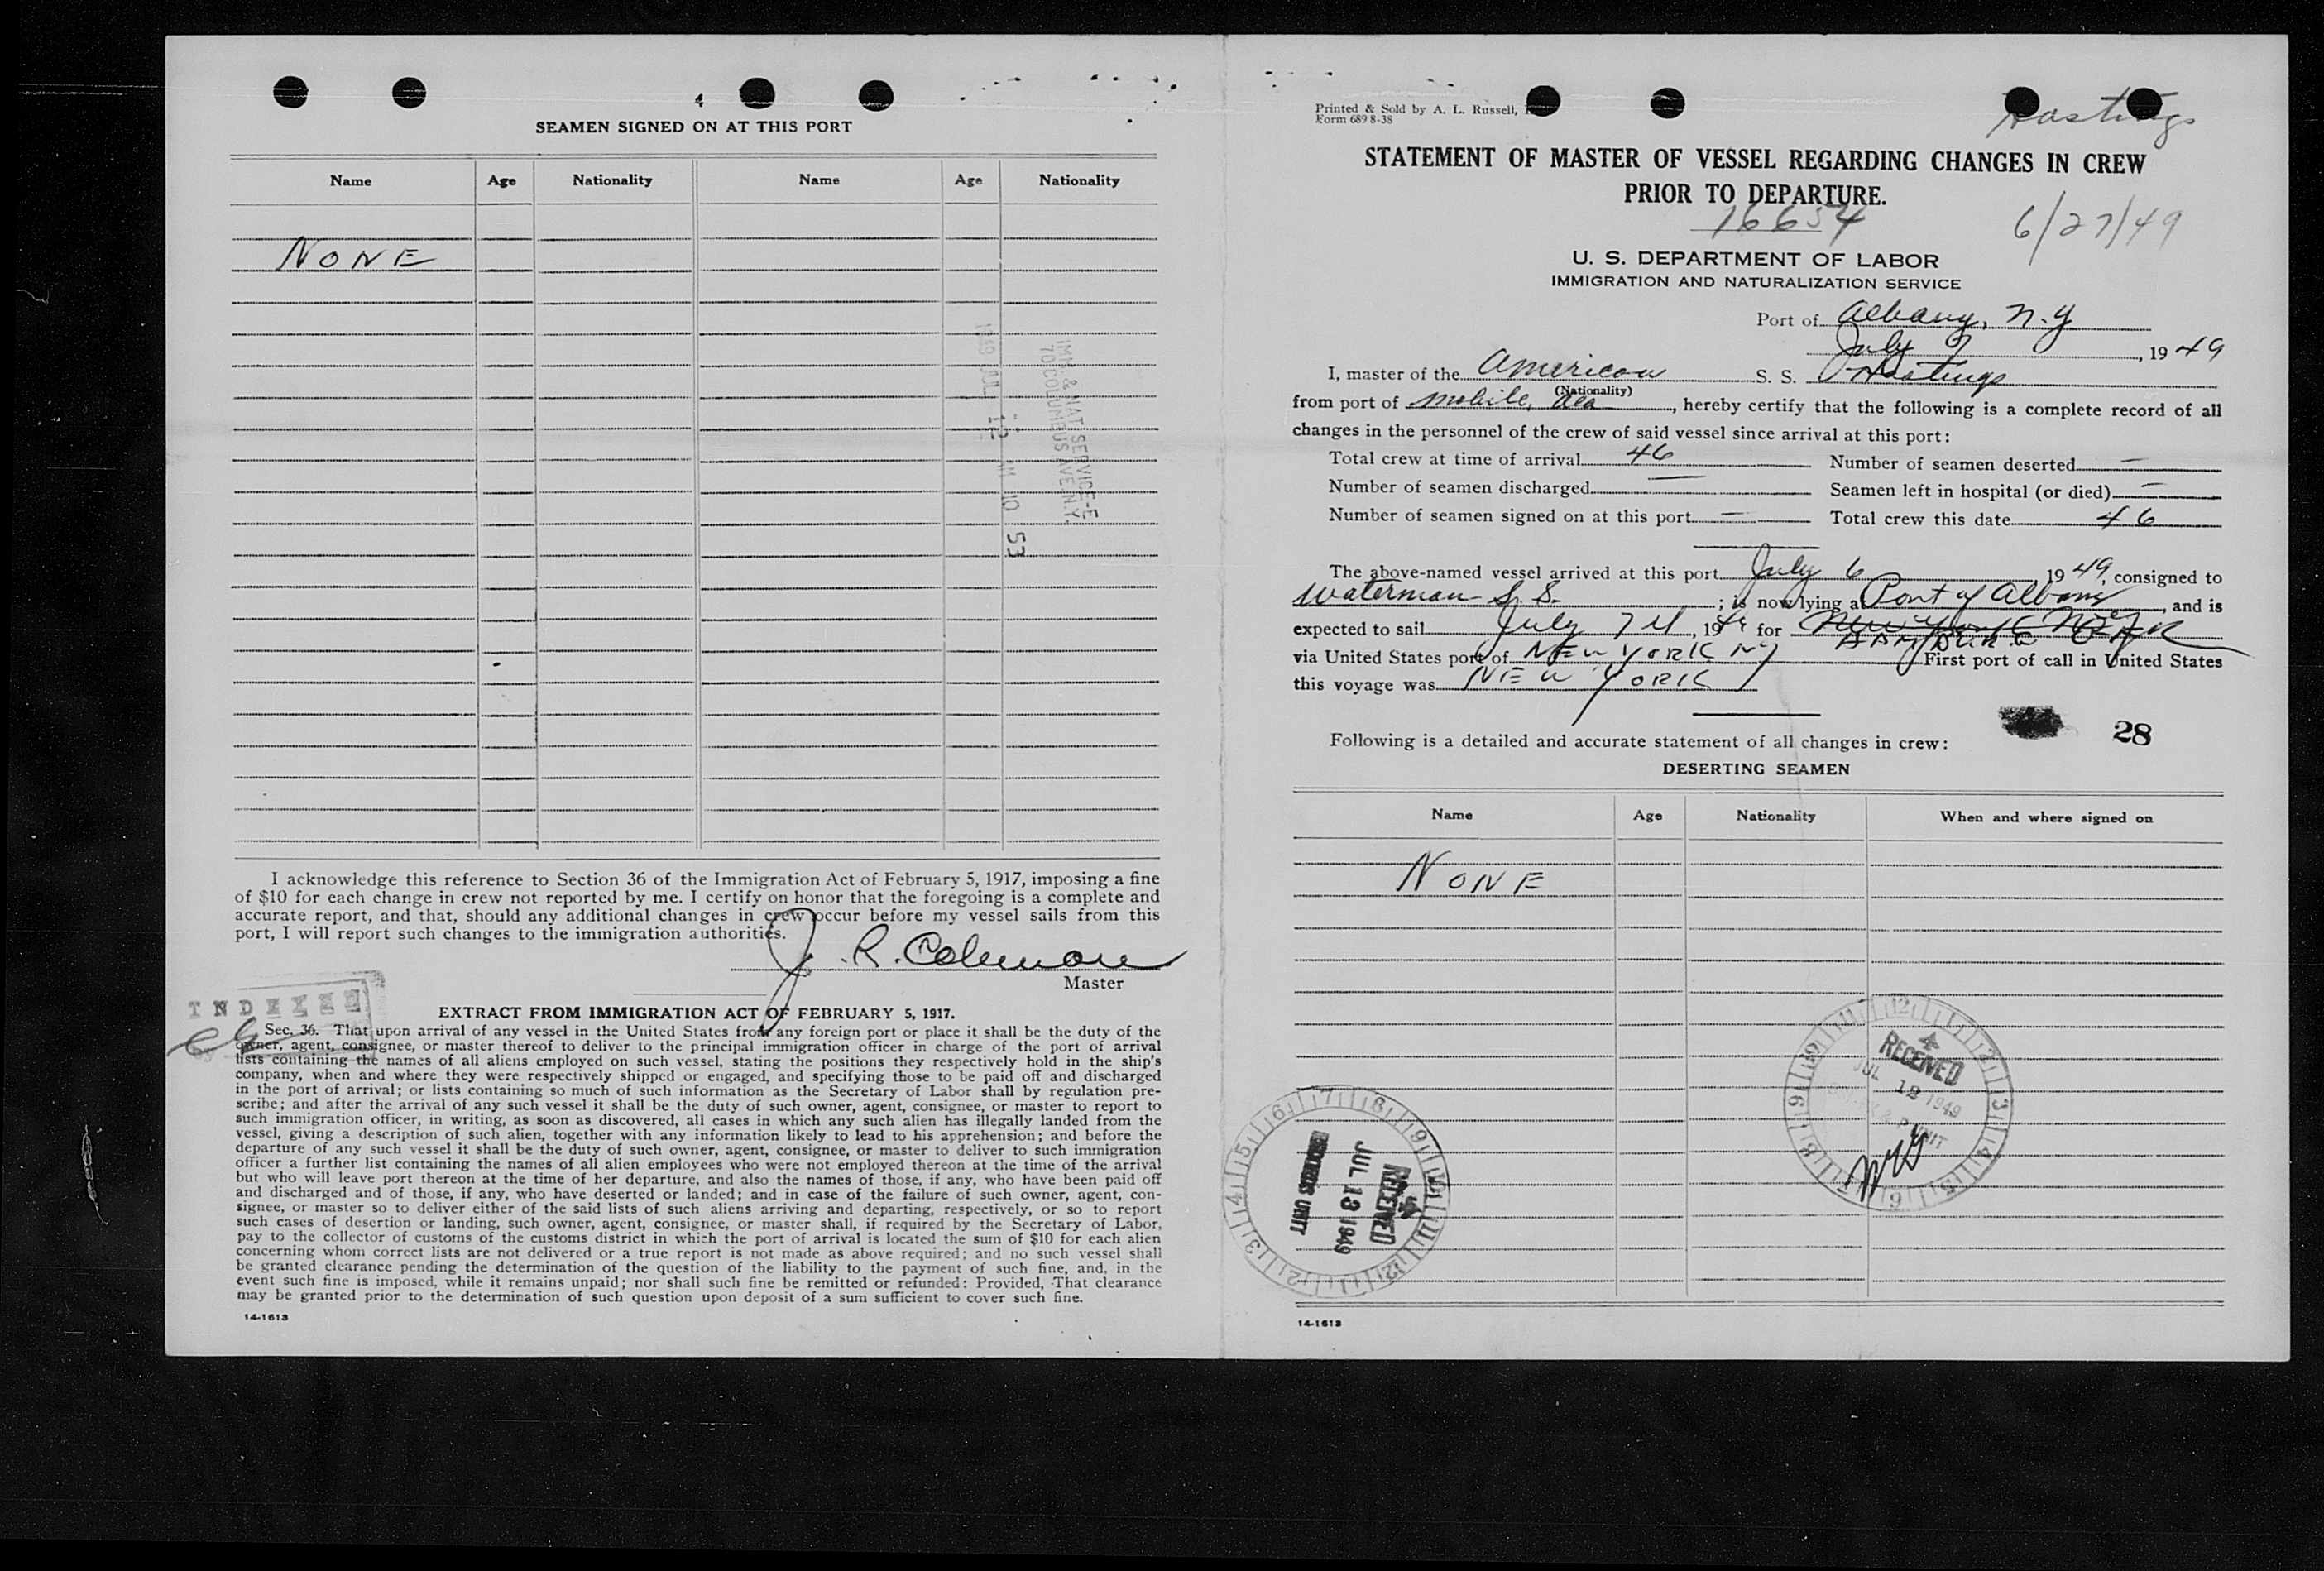 4
SEAMEN SIGNED ON AT THIS PORT
Name Age Nationality Name Age Nationality
NONE
IMM & NAT SERVICE-E
70 COLUMBUS AVE N.Y.
1949 JUL 12 AM 10 53
I acknowledge this reference to Section 36 of the Immigration Act of February 5, 1917, imposing a fine
of $10 for each change in crew not reported by me. I certify on honor that the foregoing is a complete and
accurate report, and that, should any additional changes in crew occur before my vessel sails from this
port, I will report such changes to the immigration authorities.
J. R. Coleman
Master
INDEXED
EXTRACT FROM IMMIGRATION ACT OF FEBRUARY 5, 1917.
Sec. 36. That upon arrival of any vessel in the United States from any foreign port or place it shall be the duty of the
owner, agent, consignee, or master thereof to deliver to the principal immigration officer in charge of the port of arrival
lists containing the names of all aliens employed on such vessel, stating the positions they respectively hold in the ship's
company, when and where they were respectively shipped or engaged, and specifying those to be paid off and discharged
in the port of arrival; or lists containing so much of such information as the Secretary of Labor shall by regulation pre-
scribe; and after the arrival of any such vessel it shall be the duty of such owner, agent, consignee, or master to report to
such immigration officer, in writing, as soon as discovered, all cases in which any such alien has illegally landed from the
vessel, giving a description of such alien, together with any information likely to lead to his apprehension; and before the
departure of any such vessel it shall be the duty of such owner, agent, consignee, or master to deliver to such immigration
officer a further list containing the names of all alien employees who were not employed thereon at the time of the arrival
but who will leave port thereon at the time of her departure, and also the names of those, if any, who have been paid off
and discharged and of those, if any, who have deserted or landed; and in case of the failure of such owner, agent, con-
signee, or master so to deliver either of the said lists of such aliens arriving and departing, respectively, or so to report
such cases of desertion or landing, such owner, agent, consignee, or master shall, if required by the Secretary of Labor,
pay to the collector of customs of the customs district in which the port of arrival is located the sum of $10 for each alien
concerning whom correct lists are not delivered or a true report is not made as above required; and no such vessel shall
be granted clearance pending the determination of the question of the liability to the payment of such fine, and, in the
event such fine is imposed, while it remains unpaid; nor shall such fine be remitted or refunded: Provided, That clearance
may be granted prior to the determination of such question upon deposit of a sum sufficient to cover such fine.
14-1613
Printed & Sold by A. L. Russell,
Form 689 8-38
Hastings
STATEMENT OF MASTER OF VESSEL REGARDING CHANGES IN CREW
PRIOR TO DEPARTURE.
16654
6/27/49
U. S. DEPARTMENT OF LABOR
IMMIGRATION AND NATURALIZATION SERVICE
Port of Albany, N.Y
July 7, 1949
I, master of the American S. S. Hastings
(Nationality)
from port of Mobile, Ala, hereby certify that the following is a complete record of all
changes in the personnel of the crew of said vessel since arrival at this port:
Total crew at time of arrival 46 Number of seamen deserted —
Number of seamen discharged — Seamen left in hospital (or died) —
Number of seamen signed on at this port — Total crew this date 46
The above-named vessel arrived at this port July 6 1949, consigned to
Waterman S. S. ; is now lying at Port of Albany, and is
expected to sail July 7th, 1949 for New York
via United States port of NEW YORK NY First port of call in United States
this voyage was NEW YORK
28
Following is a detailed and accurate statement of all changes in crew:
DESERTING SEAMEN
Name Age Nationality When and where signed on
NONE
RECEIVED
JUL 12 1949
RECEIVED
JUL 13 1949
RECORDS UNIT
14-1613